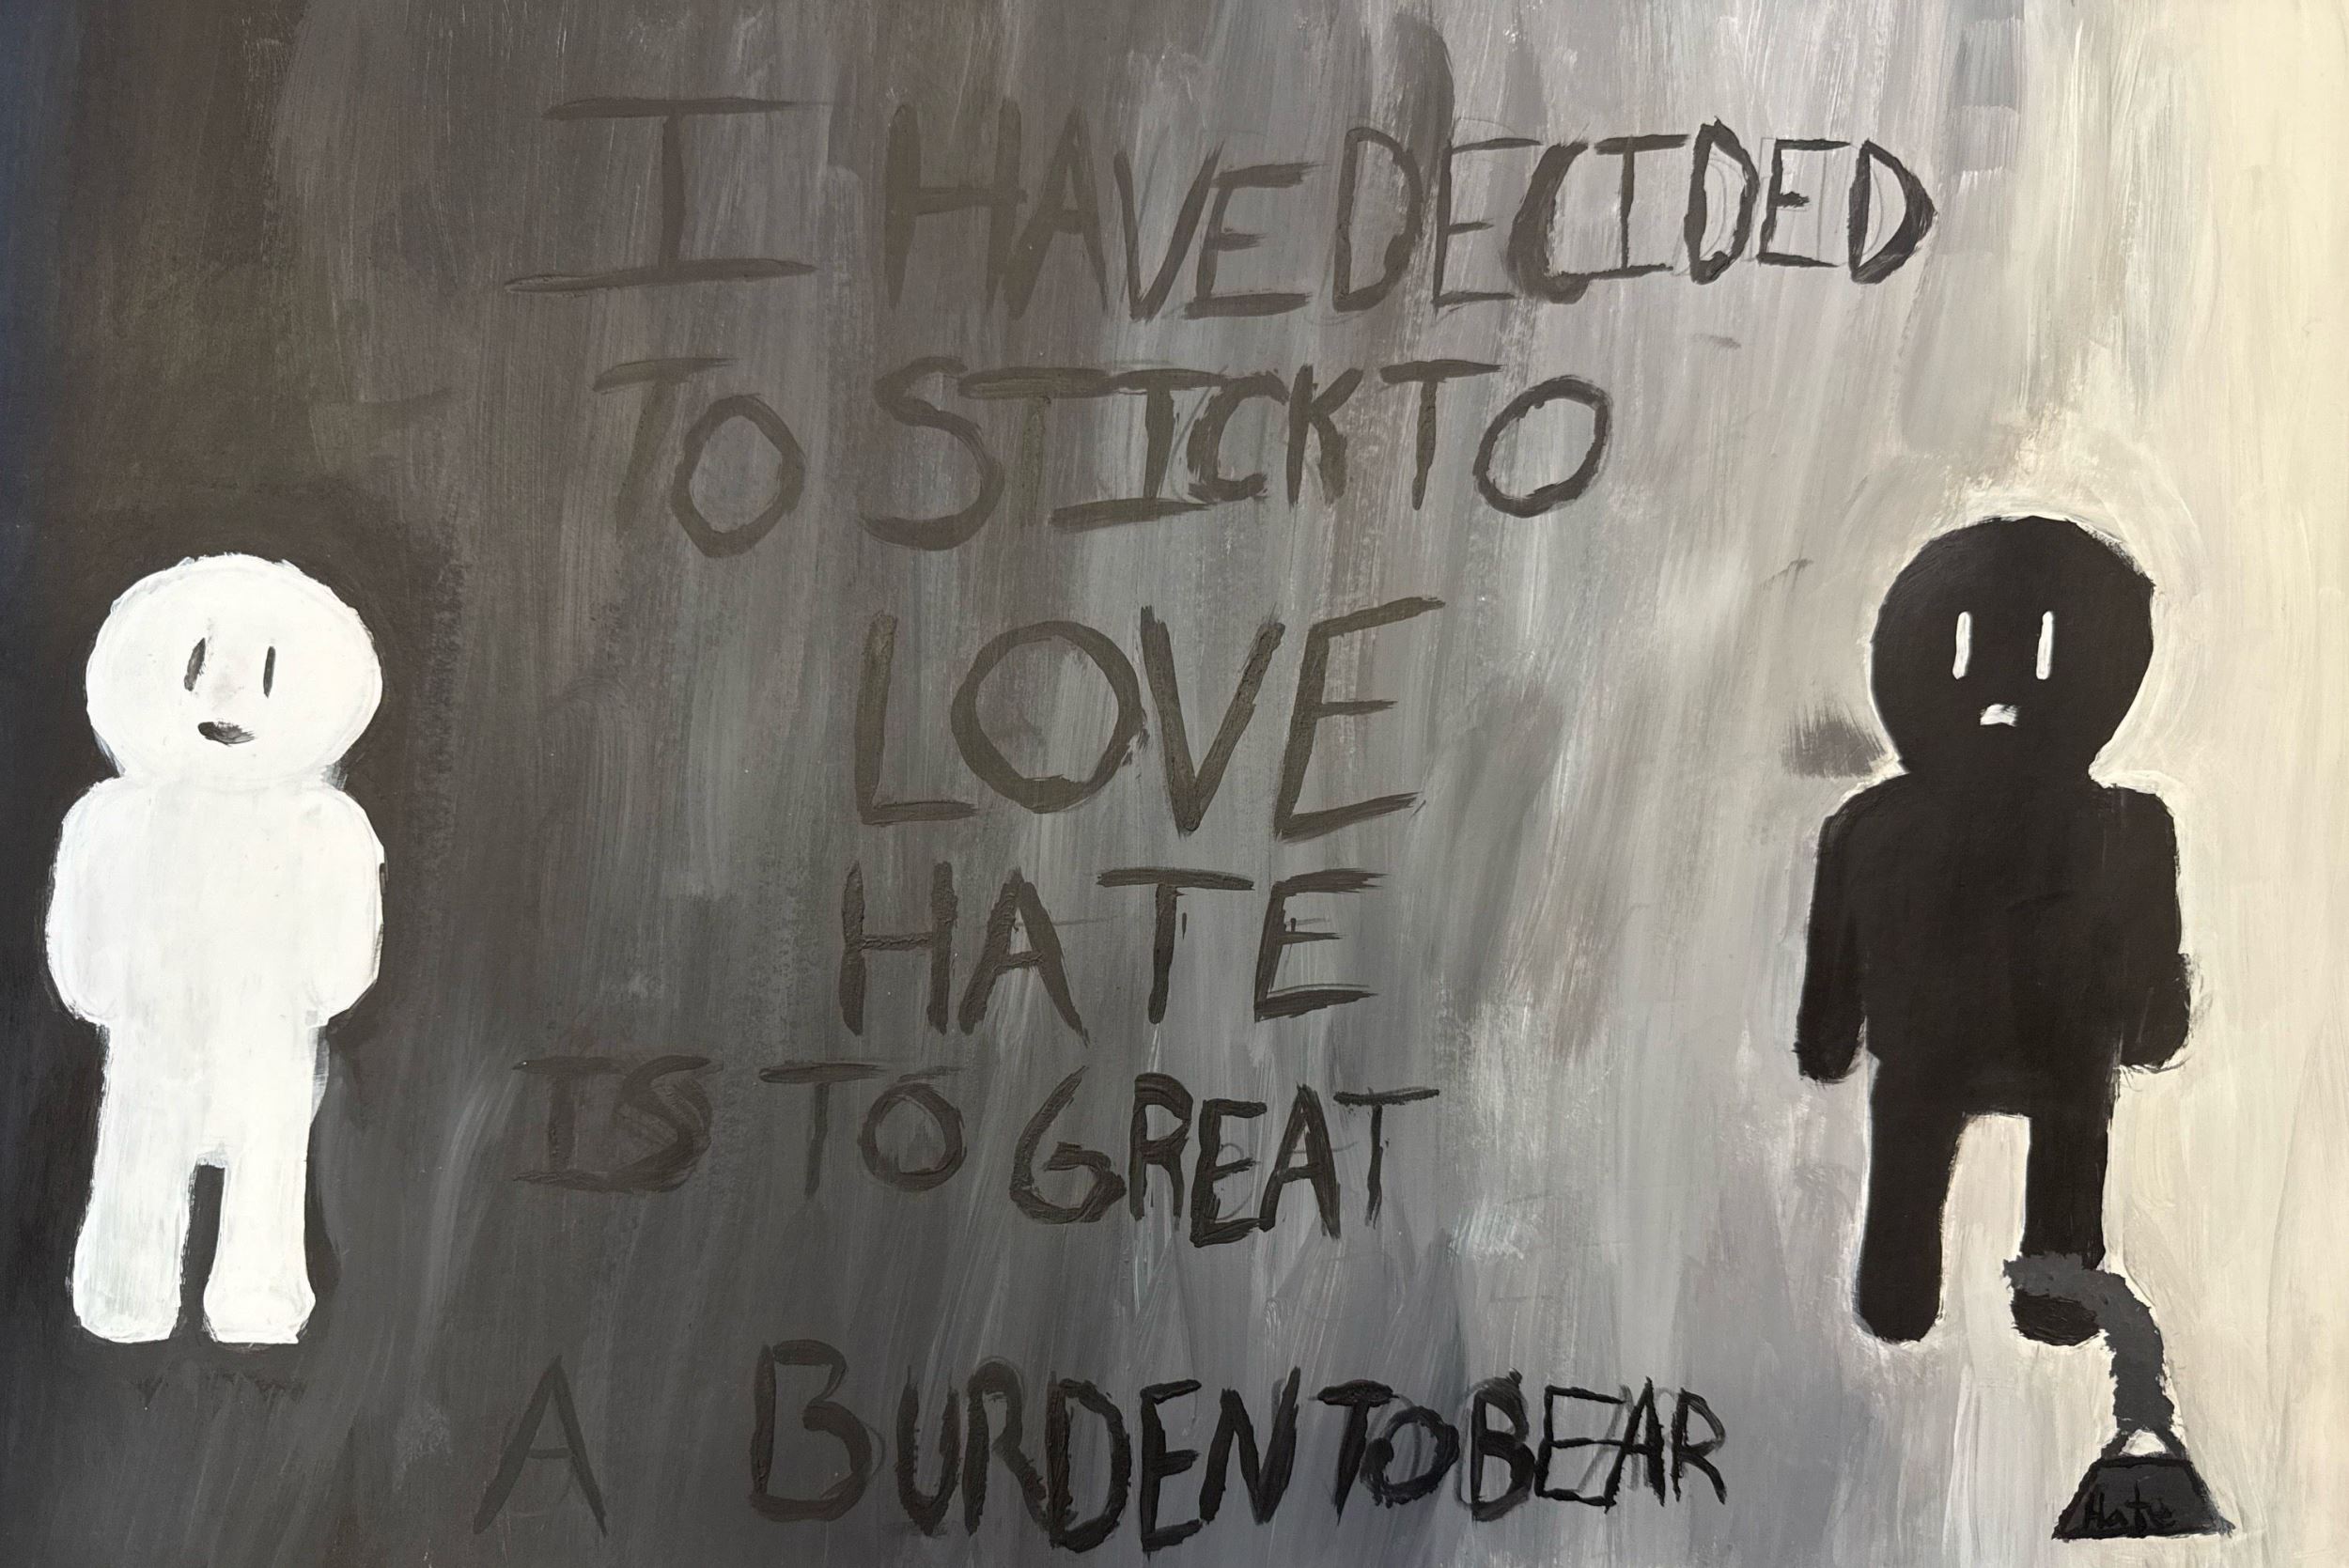 I HAVE DECIDED
TO STICK TO
LOVE
HATE
IS TO GREAT
A BURDEN TO BEAR
Hate